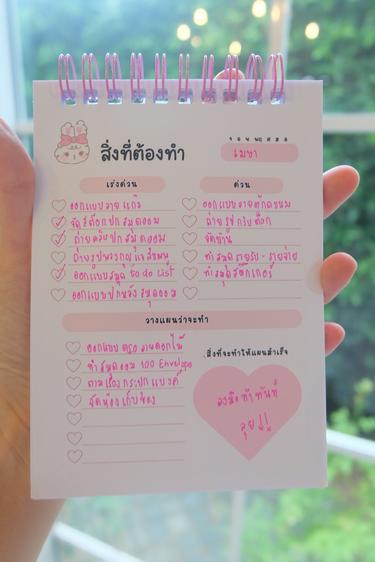 จ อ ท พฤ ศ ส อ
สิ่งที่ต้องทำ
เมษา
เร่งด่วน
ด่วน
ออกแบบลาย
จัดสต็อกปกสมุดออม
ถ่ายคลิปปกสมุดออม
ออกแบบสมุด to do List
ออกแบบปกหลังสมุดออม
ออกแบบลาย
ถ่ายรูปกริบต็อก
ทำสมุดรายรับ-รายจ่าย
ทำสมุดสติ๊กเกอร์
วางแผนว่าจะทำ
ออกแบบ ลายดอกไม้
ทำสมุดออม 100 Envelope
ตามเรื่องกระปุกแบงค์
จัดห้องเก็บของ
สิ่งที่จะทำให้แผนสำเร็จ
ลงมือทำทันที
ลุย!!